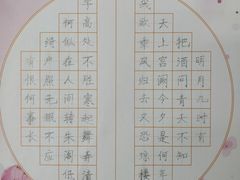 明月几时有
把酒问青天不知
天上宫阙今夕是何年
我欲乘风归去又恐琼楼
宇高处不胜寒起舞弄清
何似在人间转朱阁低
绮户照无眠不应
有恨何事长